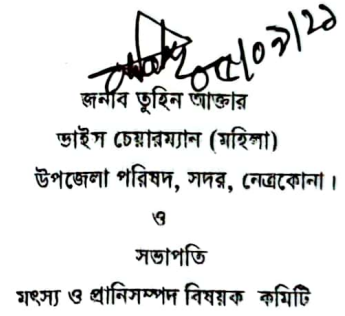 ০৫/০৯/২১
জনাব তুহিন আক্তার
ভাইস চেয়ারম্যান (মহিলা)
উপজেলা পরিষদ, সদর, নেত্রকোনা।
ও
সভাপতি
মৎস্য ও প্রানিসম্পদ বিষয়ক কমিটি